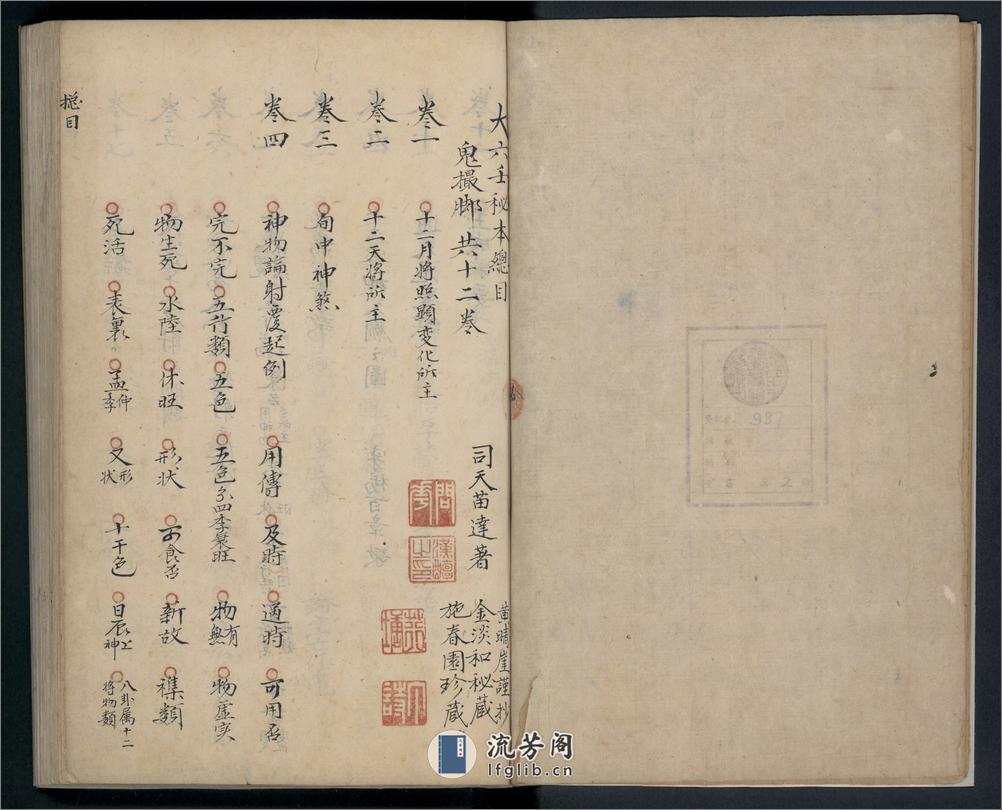 大六壬秘本總目
鬼撮脚 共十二卷
司天苗達著
黄曙崖謹抄
金淡和秘藏
施春園珍藏
卷一 十二月将照顯変化所主
卷二 十二天将所主
卷三 旬中神煞
卷四 神物論射覆起例 用傳 及時 過時 可用否
完不完 五行類 五色 五色分四季衰旺 物有無 物虛实
物生死 水陸 休旺 形状 可食否 新故 襍類
死活 表裏 孟仲季 又形状 十干色 日辰上神 八卦属十二将物類
總目
981
流芳阁
lfglib.cn